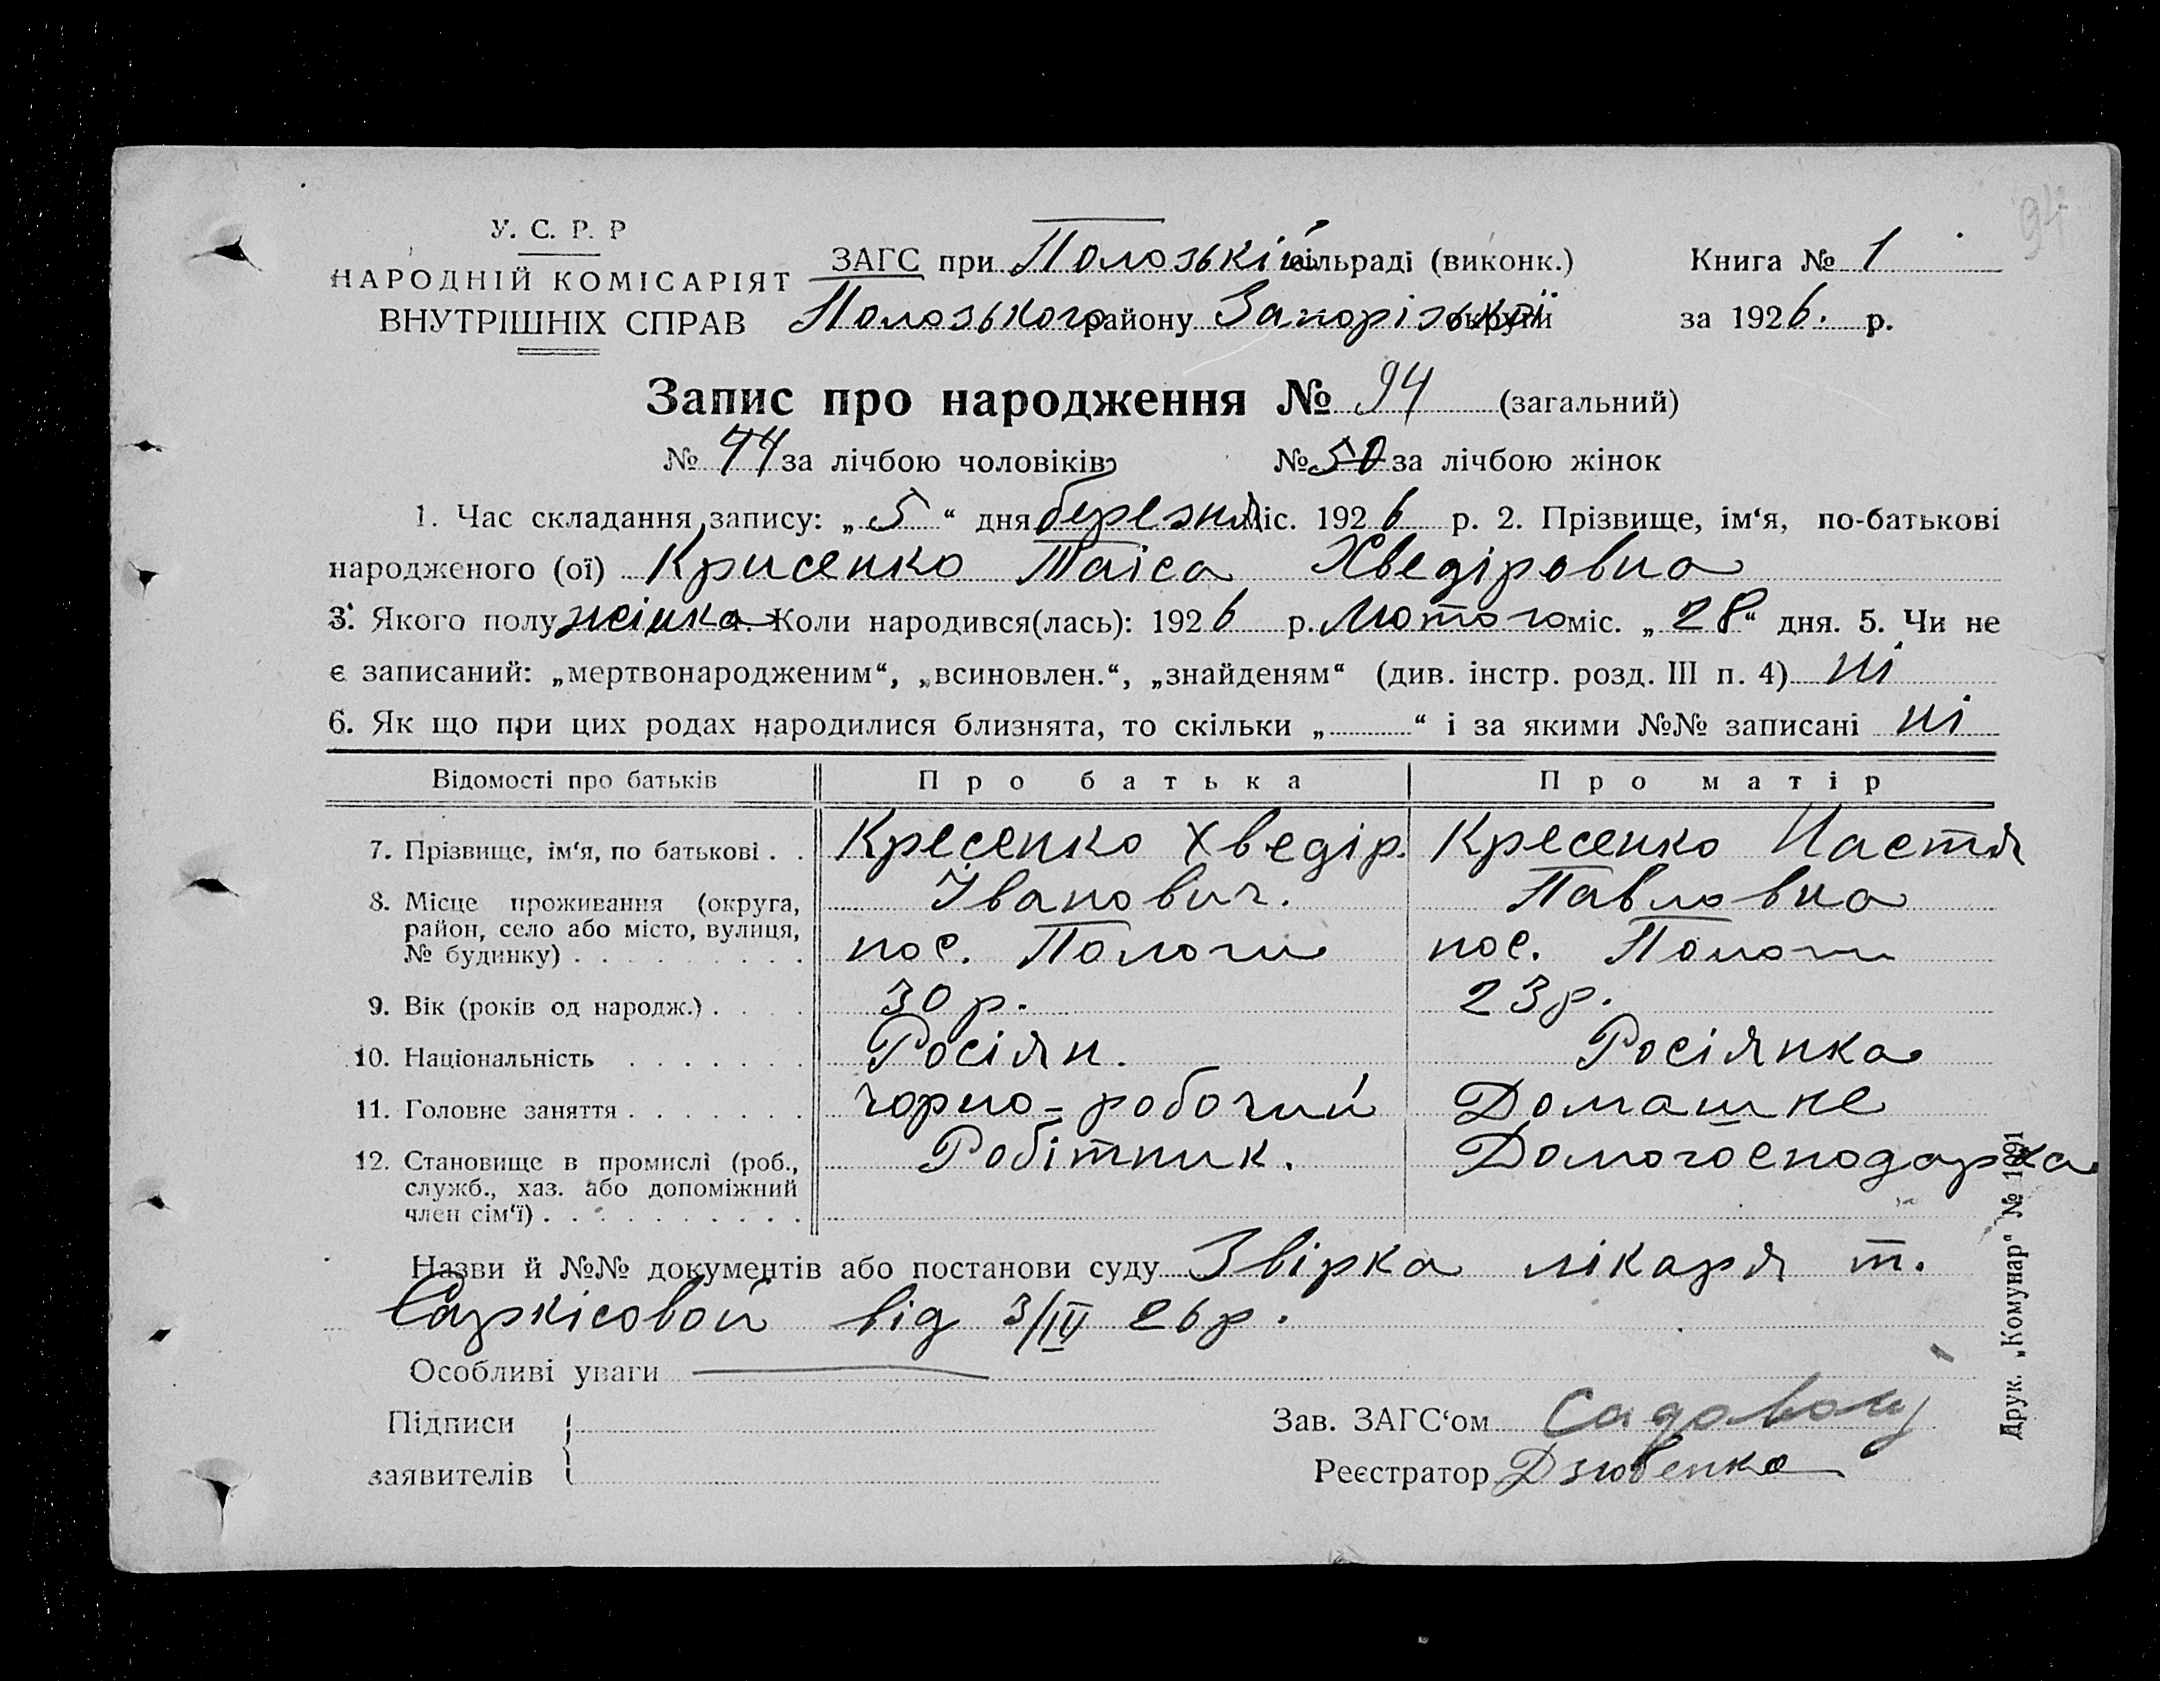 94
У. С. Р. Р
НАРОДНІЙ КОМІСАРІЯТ
ВНУТРІШНІХ СПРАВ
ЗАГС при Полозькій сільраді (виконк.) Книга № 1
Полозького району Запорізької округи за 1926. р.
Запис про народження № 94 (загальний)
№ 44 за лічбою чоловіків № 50 за лічбою жінок
1. Час складання запису: „ 5 “ дня березня міс. 1926 р. 2. Прізвище, ім‘я, по-батькові
народженого (ої) Крисенко Таіса Хведіровна
3. Якого полу жінка 4. Коли народився(лась): 1926 р. Лютого міс. „ 28 “ дня. 5. Чи не
є записаний: „мертвонародженим“, „всиновлен.“, „знайденям“ (див. інстр. розд. III п. 4) ні
6. Як що при цих родах народилися близнята, то скільки „ “ і за якими №№ записані ні
Відомості про батьків Про батька Про матір
7. Прізвище, ім‘я, по батькові . . Кресенко Хведір. Кресенко Настя
Іванович. Павловна
8. Місце проживання (округа,
район, село або місто, вулиця,
№ будинку) . . . . . . . . . пос. Пологи пос. Пологи
9. Вік (років од народж.) . . . . 30 р. 23 р.
10. Національність . . . . . . . Росіян. Росіянка
11. Головне заняття . . . . . . . чорно-робочий Домашнє
12. Становище в промислі (роб., Робітник. Домогосподарка
служб., хаз. або допоміжний
член сім‘ї) . . . . . . . . . .
Назви й №№ документів або постанови суду Звірка лікаря т.
Саркісовой від 3/IV 26 р.
Особливі уваги
Підписи
заявителів
Зав. ЗАГС‘ом
Реєстратор Дзюбенко
Друк. „Комунар“ № 1091